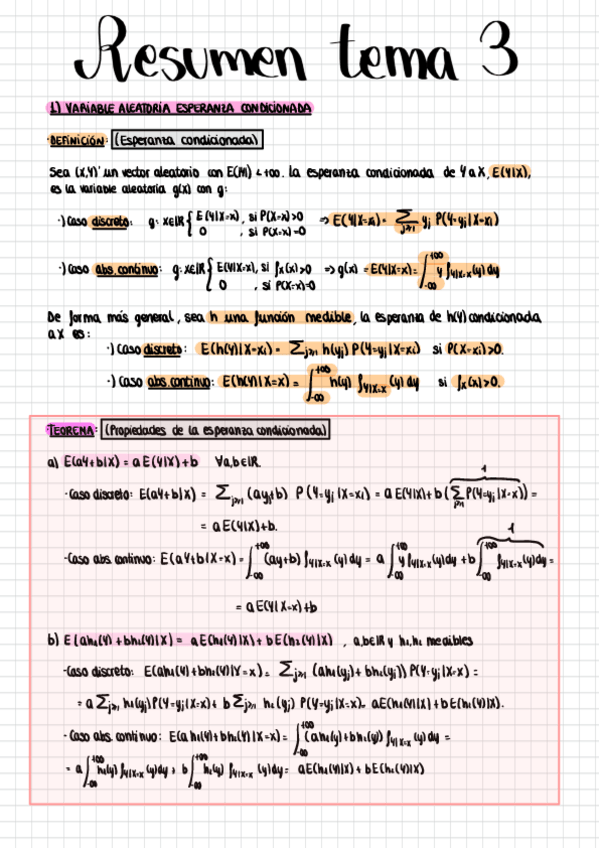 Resumen tema 3
1) VARIABLE ALEATORIA ESPERANZA CONDICIONADA
·DEFINICIÓN: (Esperanza condicionada)
Sea (X,Y)' un vector aleatorio con E(|Y|) < +∞. La esperanza condicionada de Y a X, E(Y|X),
es la variable aleatoria g(X) con g:
·) Caso discreto: g: x∈ℝ { E(Y|X=x), si P(X=x)>0 ⇒ E(Y|X=xi) = ∑j≥1 yj P(Y=yj|X=xi)
0 , si P(X=x)=0
·) Caso abs. continuo: g: x∈ℝ { E(Y|X=x), si fx(x)>0 ⇒ g(x) = E(Y|X=x) = ∫-∞+∞ y fY|X=x(y) dy
0 , si P(X=x)=0
De forma más general, sea h una función medible, la esperanza de h(Y) condicionada
a X es:
·) Caso discreto: E(h(Y)|X=xi) = ∑j≥1 h(yj) P(Y=yj|X=xi) si P(X=xi)>0.
·) Caso abs. continuo: E(h(Y)|X=x) = ∫-∞+∞ h(y) fY|X=x(y) dy si fx(x)>0.
TEOREMA: (Propiedades de la esperanza condicionada)
a) E(aY+b|X) = aE(Y|X)+b ∀a,b∈ℝ.
1
·Caso discreto: E(aY+b|X) = ∑j≥1 (ayj+b) P(Y=yj|X=xi) = aE(Y|X)+b(∑j≥1 P(Y=yj|X=x)) =
= aE(Y|X)+b.
1
·Caso abs. continuo: E(aY+b|X=x) = ∫-∞+∞ (ay+b) fY|X=x(y) dy = a ∫-∞+∞ y fY|X=x(y)dy + b ∫-∞+∞ fY|X=x(y)dy =
= aE(Y|X=x)+b
b) E(ah1(Y)+bh2(Y)|X) = aE(h1(Y)|X)+bE(h2(Y)|X) , a,b∈ℝ y h1,h2 medibles
·Caso discreto: E(ah1(Y)+bh2(Y)|X=x) = ∑j≥1 (ah1(yj)+bh2(yj)) P(Y=yj|X=x) =
= a∑j≥1 h1(yj)P(Y=yj|X=x)+ b∑j≥1 h2(yj) P(Y=yj|X=x)= aE(h1(Y)|X)+bE(h2(Y)|X).
·Caso abs. continuo: E(ah1(Y)+bh2(Y)|X=x) = ∫-∞+∞ (ah1(y)+bh2(y)) fY|X=x(y) dy =
= a ∫-∞+∞ h1(y) fY|X=x(y)dy + b ∫-∞+∞ h2(y) fY|X=x(y)dy = aE(h1(Y)|X)+bE(h2(Y)|X)